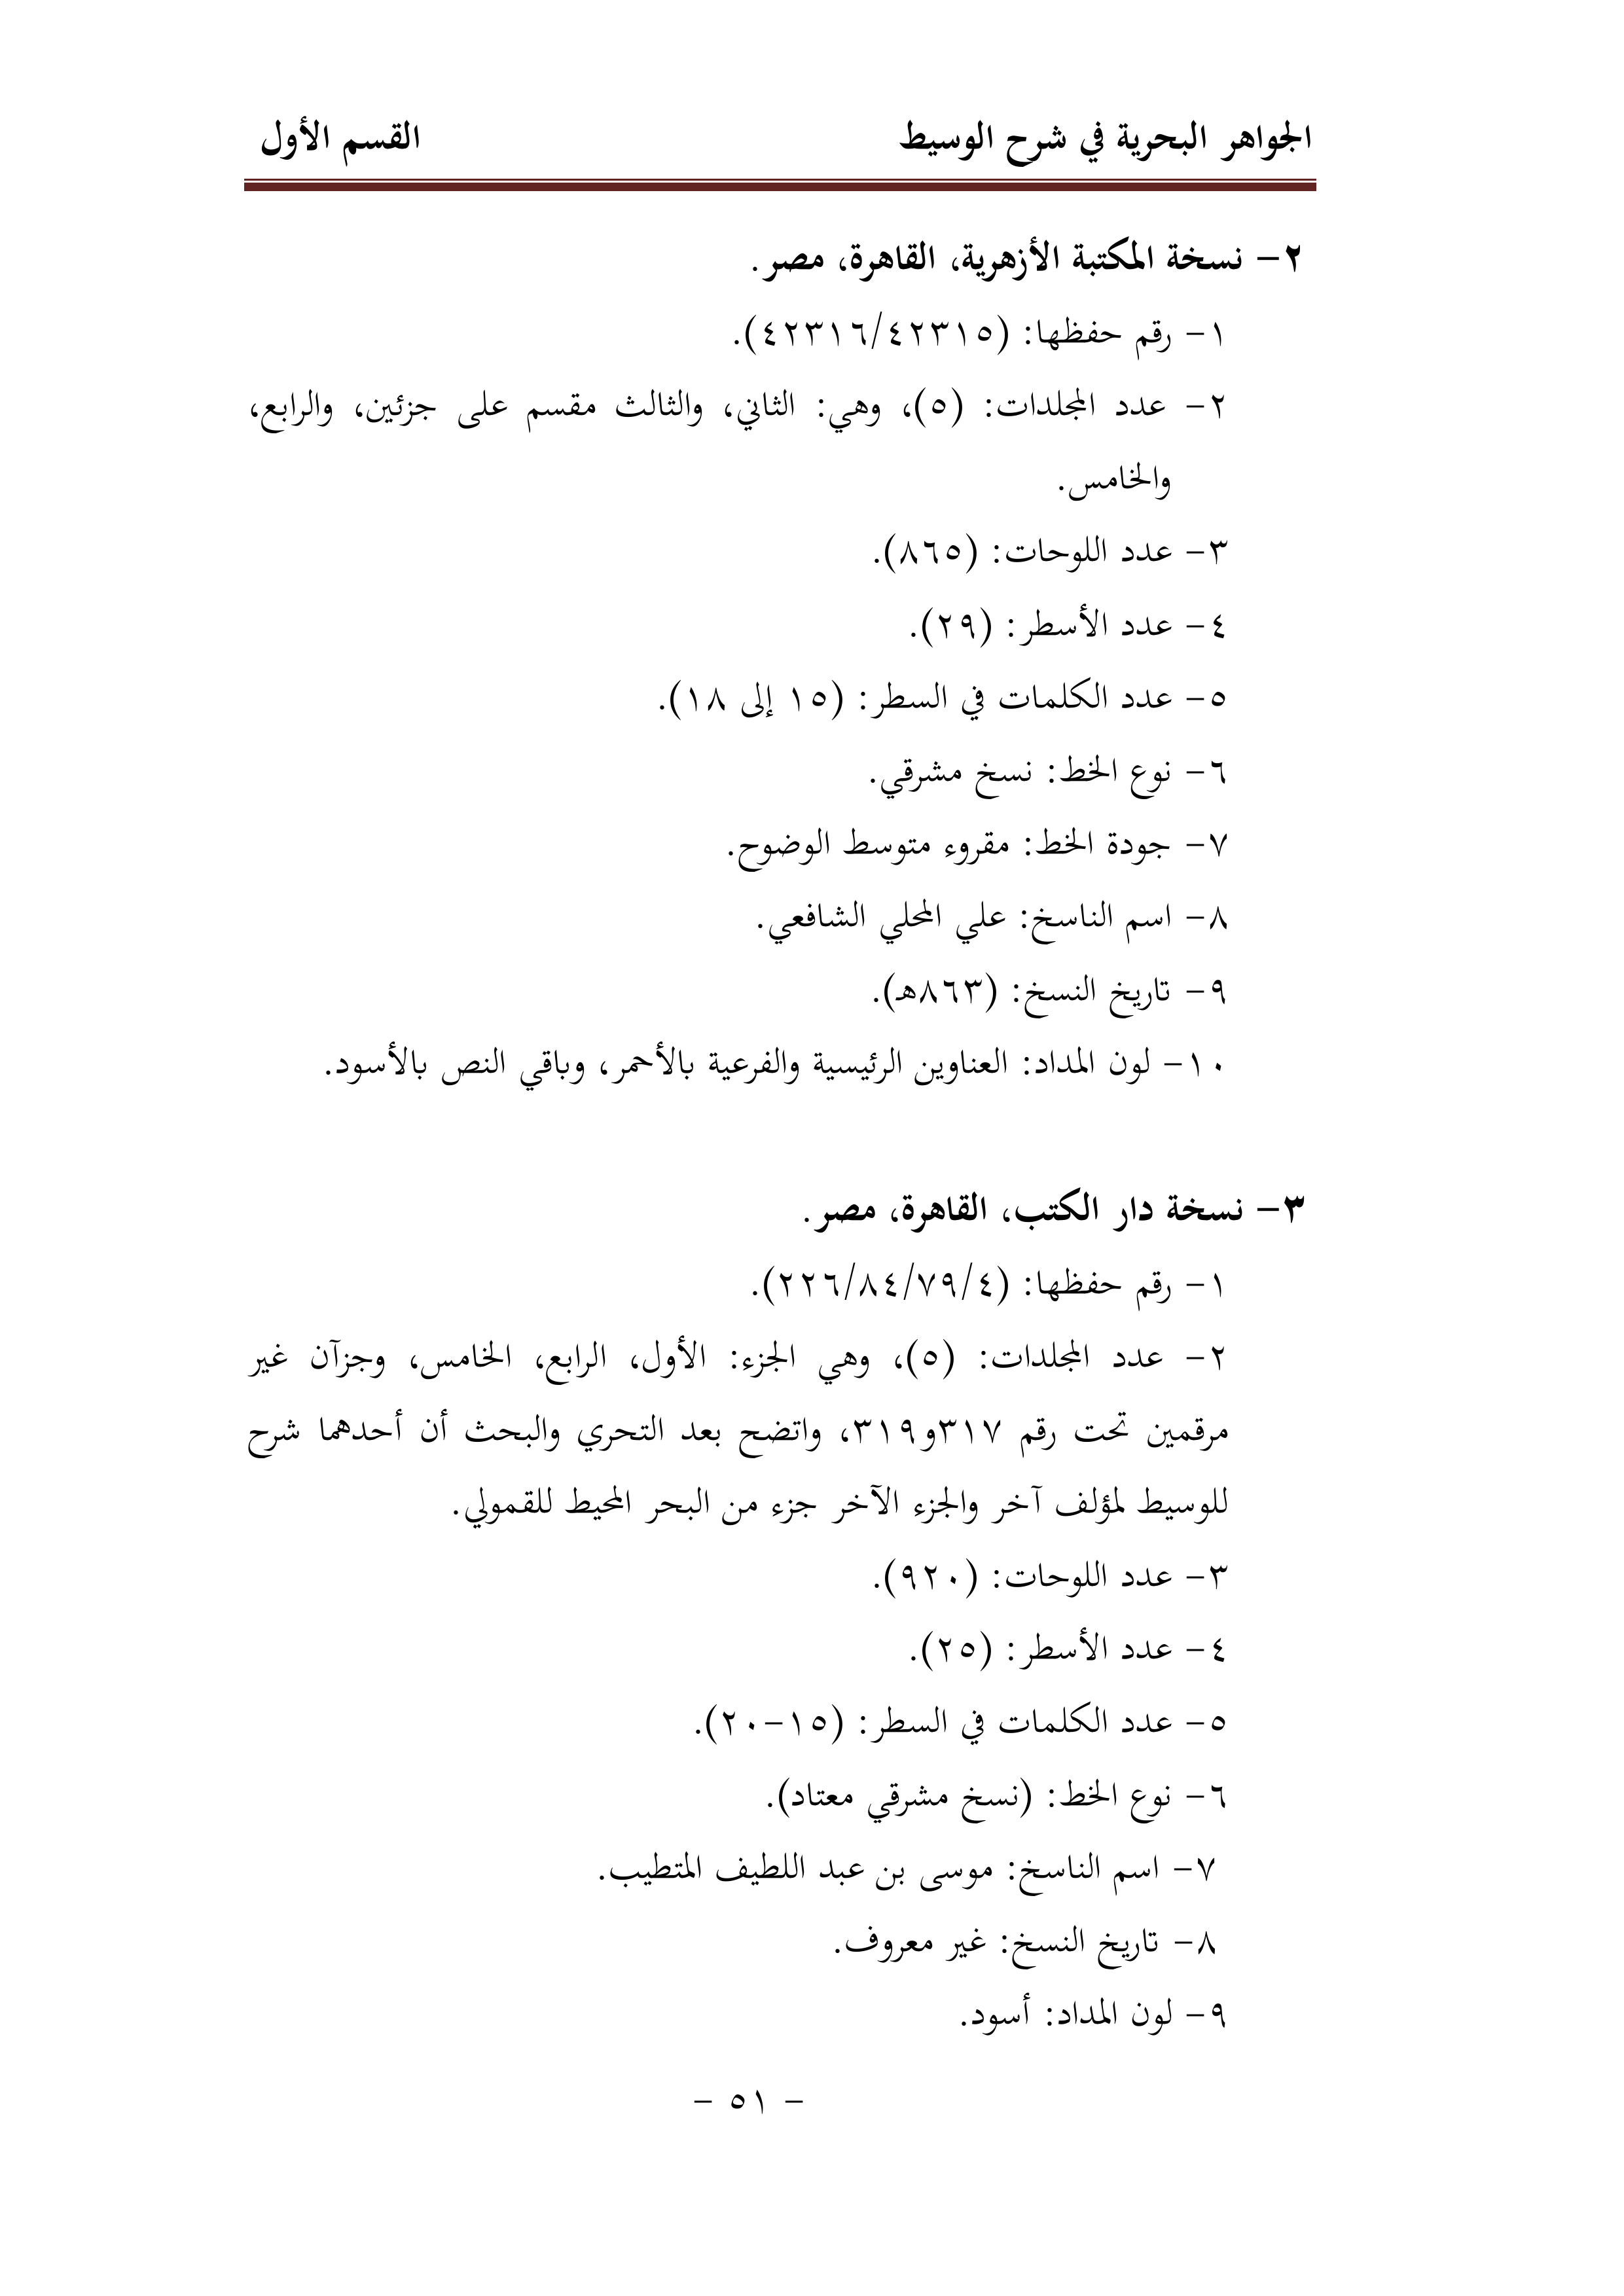 الجواهر البحرية في شرح الوسيط القسم الأول
٢- نسخة المكتبة الأزهرية، القاهرة، مصر.
١- رقم حفظها: (٤٢٣١٦/٤٢٣١٥).
٢- عدد المجلدات: (٥)، وهي: الثاني، والثالث مقسم على جزئين، والرابع،
والخامس.
٣- عدد اللوحات: (٨٦٥).
٤- عدد الأسطر: (٢٩).
٥- عدد الكلمات في السطر: (١٥ إلى ١٨).
٦- نوع الخط: نسخ مشرقي.
٧- جودة الخط: مقروء متوسط الوضوح.
٨- اسم الناسخ: علي المحلي الشافعي.
٩- تاريخ النسخ: (٨٦٣هـ).
١٠- لون المداد: العناوين الرئيسية والفرعية بالأحمر، وباقي النص بالأسود.
٣- نسخة دار الكتب، القاهرة، مصر.
١- رقم حفظها: (٢٢٦/٨٤/٧٩/٤).
٢- عدد المجلدات: (٥)، وهي الجزء: الأول، الرابع، الخامس، وجزآن غير
مرقمين تحت رقم ٣١٧و٣١٩، واتضح بعد التحري والبحث أن أحدهما شرح
للوسيط لمؤلف آخر والجزء الآخر جزء من البحر المحيط للقمولي.
٣- عدد اللوحات: (٩٢٠).
٤- عدد الأسطر: (٢٥).
٥- عدد الكلمات في السطر: (١٥-٢٠).
٦- نوع الخط: (نسخ مشرقي معتاد).
٧- اسم الناسخ: موسى بن عبد اللطيف المتطيب.
٨- تاريخ النسخ: غير معروف.
٩- لون المداد: أسود.
- ٥١ -